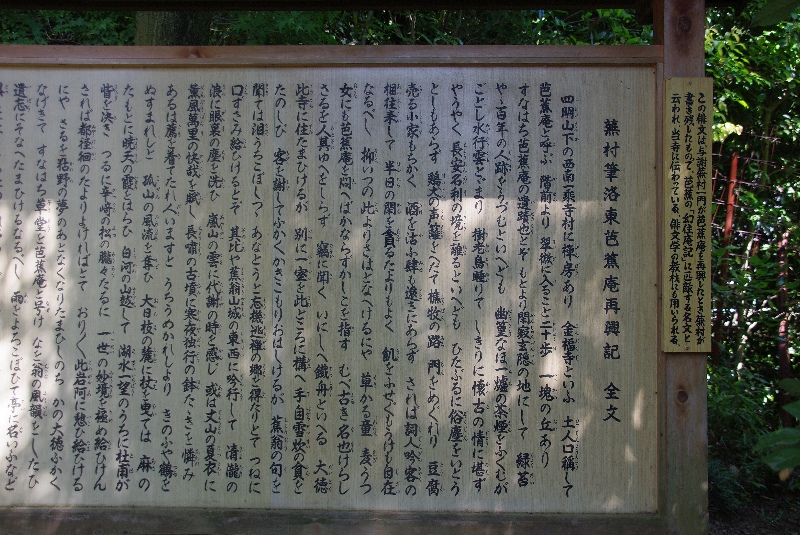 この俳文は、与謝蕪村一門が芭蕉庵を再興したとき、蕪村が
書き残したもので、芭蕉の「幻住庵記」に匹敵する名文と
云われ、当寺に伝わっている。俳文学の教枝にも用いられる。
蕪村筆洛東芭蕉庵再興記 全文
四明山下の西南一乗寺村に禅房あり 金福寺といふ 土人口称して
芭蕉庵と呼ぶ 階前より翠微に入ること二十歩 一塊の丘あり
すなはち芭蕉庵の遺蹟也とぞ もとより閑寂玄隠の地にして 緑苔
やゝ百年の人跡をうづむといへども 幽篁なほ一爐の茶煙をふくむが
ごとし 水行雲とゞまり 樹老鳥睡りて しきりに懐古の情に堪ず
やうやく長安名利の境を離るといへども ひたぶるに俗塵をいとふ
としもあらず 鶏犬の声籬をへだて 樵牧の路門をめぐれり 豆腐
売る小家もちかく 酒を沽ふ肆も遠きにあらず されば詞人吟客の
相往来して 半日の閑を貪るたよりもよく 飢をふせぐもうけも自在
なるべし 抑いつの比よりさはとなへけるにや 草かる童 麦うつ
女にも芭蕉庵を問へばかならずかしこを指す むべ古き名也けらし
さるを人其ゆへをしらず 竊に聞く いにしへ鐵舟といへる 大徳
此寺に住たまひけるが 別に一室を此ところに構へ 手自雪炊の貧を
たのしび 客を謝してふかくかきこもりおはしけるが 蕉翁の句を
聞ては泪うちこぼしつゝ あなたうと忘機逃禅の郷を得たりとて つねに
口ずさみ給ひけるとぞ 其比や蕉翁山城の東西に吟行して 清瀧の
浪に眼裏の塵を洗ひ 嵐山の雲に代謝の時を感じ 或は丈山の夏衣に
薫風萬里の快哉を賦し 長嘯の古墳に寒夜独行の鉢たゝきを憐み
あるは薦を着てたれ人ゐますと うちうめかれしより きのふや鶴を
ぬすまれしと 孤山の風流を奪ひ 大日枝の麓に杖を曳ては 麻の
たもとに暁天の霞をはらひ 白河の山越して 湖水一望のうちに杜甫が
眥を決き つゐに辛崎の松の朧々たるに 一世の妙境を極め給ひけん
されば都徑徊のたよりよければとて おりゝゝ此岩阿に憩ひ給ひける
にや さるを枯野の夢のあとなくなりたまひしのち かの大徳ふかく
なげきて すなはち草堂を芭蕉庵と号け なを翁の風韻をしたひ
遺忘にそなへたまひけるなるべし 雨をよろこびて亭に名いふなど